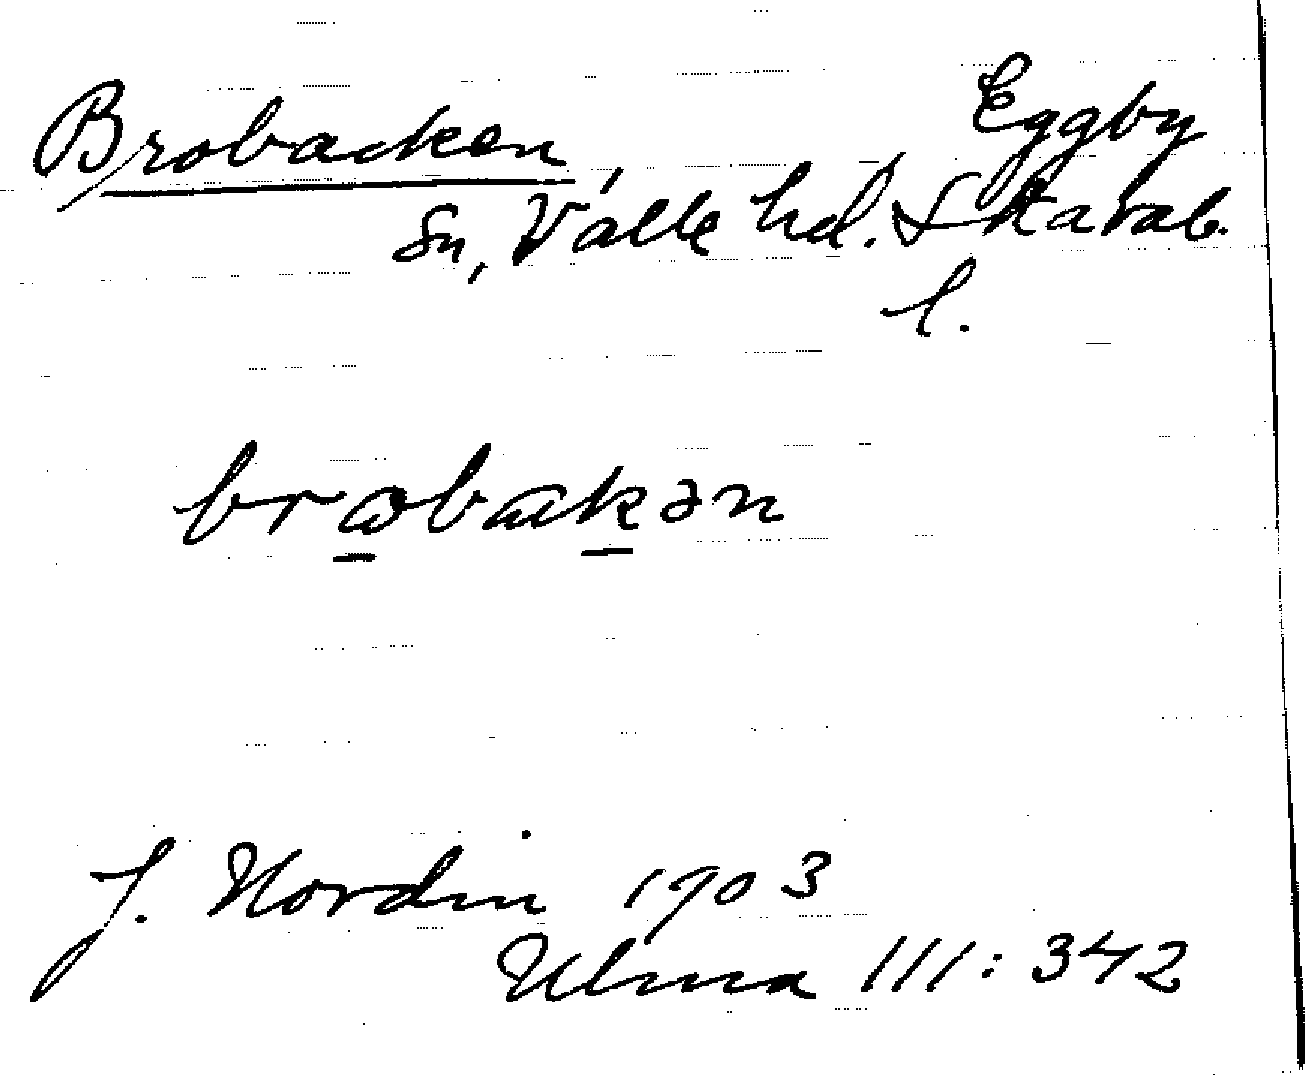 Brobacken, Eggby
sn, Valle hd. Skarab.
l.
brωbakən
J. Nordin 1903
Ulma 111:342